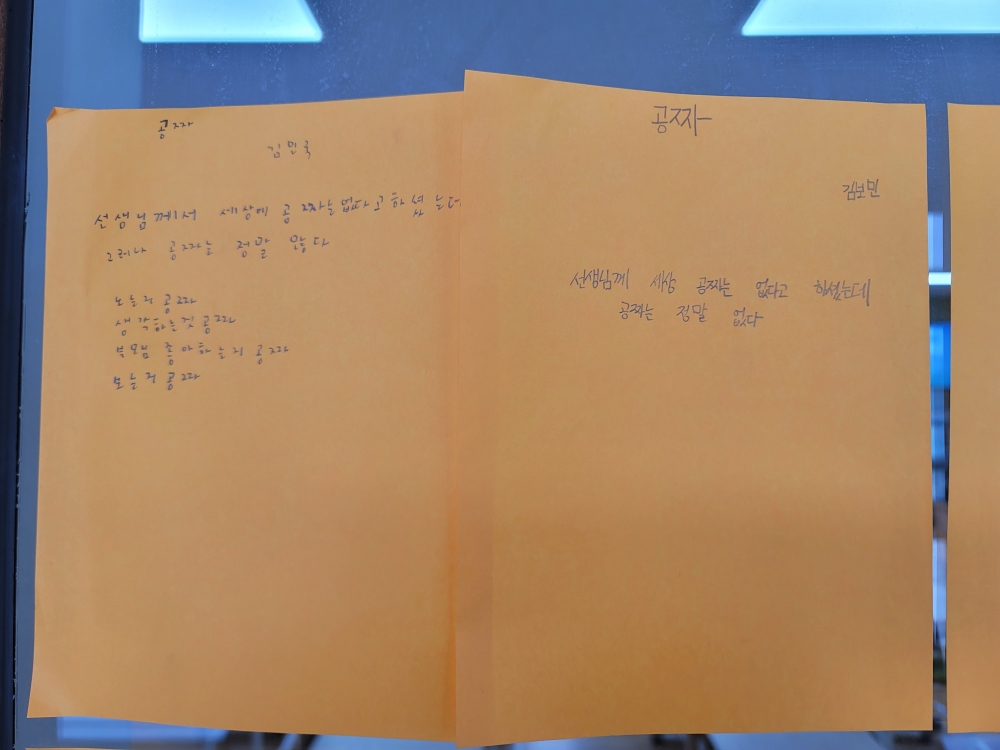 공짜
김민국
선생님께서 세상에 공짜는없다고하셨는데
그러나 공짜는 정말 많다
노는것 공짜
생각하는것 공짜
부모님 좋아하는것 공짜
보는것 공짜
공짜
김보민
선생님께 세상 공짜는 없다고 하셨는데
공짜는 정말 없다